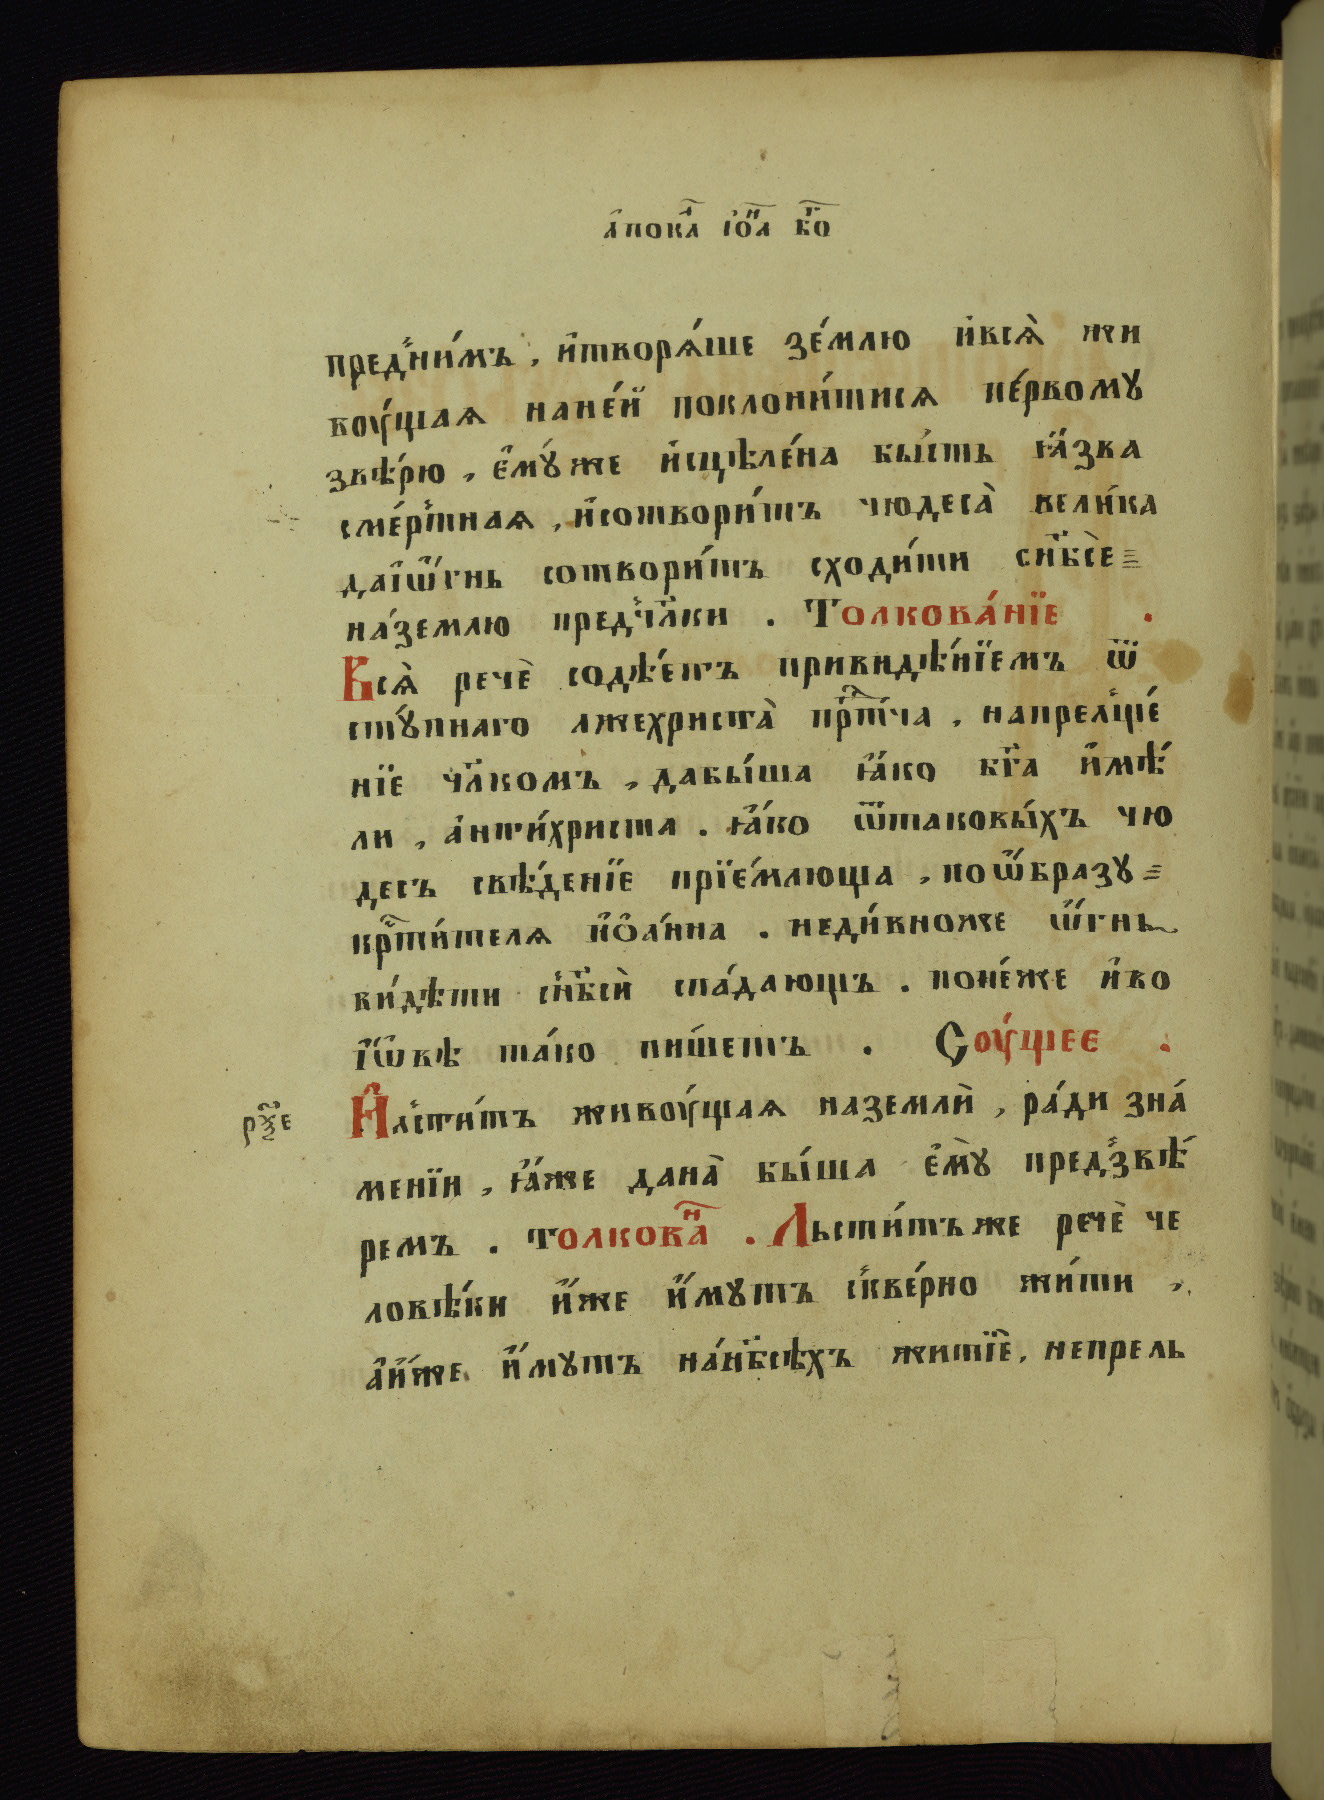 а҆пока́л і҆ѡⷩ҇а бⷢ҇о
пред̾ни́мъ, и҆творѧ́ше зе́млю и҆всѧ̀ жи
воу́щаѧ нане́й поклони́тисѧ пе́рвому
звѣ́рю, є҆му́же и҆сцѣле́на бы́сть ꙗ҆́зва
сме́рт̾наѧ, и҆сотвори́тъ чюдеса̀ вели́ка
даї҆ѻ҆́гнь сотвори́тъ сходи́ти сн҃бсѐ
на́землю пред̾чл҃ки . Толкова́нїе .
Всѧ̀ речѐ содѣ́етъ привидѣ́нїемъ ѿ
сту́пнаго лжехриста̀ прⷣт҇ча, напрел̾ще́
нїе чл҃комъ, дабы́ша ꙗ҆́ко бг҃а и҆мѣ́
ли, а҆нти́христа . ꙗ҆́ко ѿтаковы́хъ чю
десъ свѣ́денїе прїе́млюща, поѡ҆́бразу
крⷭ҇ти́телѧ и҆ѻ҆а́нна . неди́вноже ѻ҆́гнь
ви́дѣти сн҃бсѝ спа́дающъ . поне́же и҆во
і҆́ѡвѣ та́ко пи́шетъ . Соу́щее .
рѯ҃е И҆л̾сти́тъ живоу́щаѧ наземлѝ, ра́ди зна́
менїи, ꙗ҆́же дана̀ бы́ша є҆мꙋ̀ пред̾звѣ́
ремъ . Толковаⷩ҇ . Льсти́тъже речѐ че
ловѣ́ки и҆́же и҆́мутъ скве́рно жи́ти ,
а҆и҆́же и҆́мутъ на́нб҃сѣхъ житїѐ, непрель